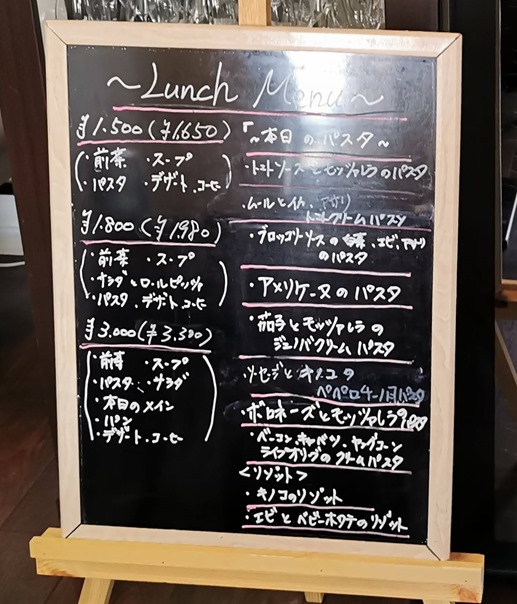 ~Lunch Menu~
¥1.500(¥1.650)
・前菜 ・スープ
・パスタ ・デザート.コーヒー
¥1.800(¥1.980)
・前菜 ・スープ
・サラダとロールピッツァ
・パスタ.デザート.コーヒー
¥3.000(¥3.300)
・前菜 ・スープ
・パスタ・サラダ
・本日のメイン
・パン
・デザート.コーヒー
~本日のパスタ~
・トマトソースとモッツァレラのパスタ
・ムールとイカ、アサリ
トマトクリームパスタ
・ブロッコリーソースの 、エビ、アサリ
のパスタ
・アメリケーヌのパスタ
・茄子とモッツァレラの
ジェノバクリームパスタ
・ソーセージとキノコの
ペペロンチーノパスタ
・ボロネーズとモッツァレラの
・ベーコン、キャベツ、ヤングコーン
ライブオリーブのクリームパスタ
<リゾット>
・キノコのリゾット
・エビとベビーホタテのリゾット